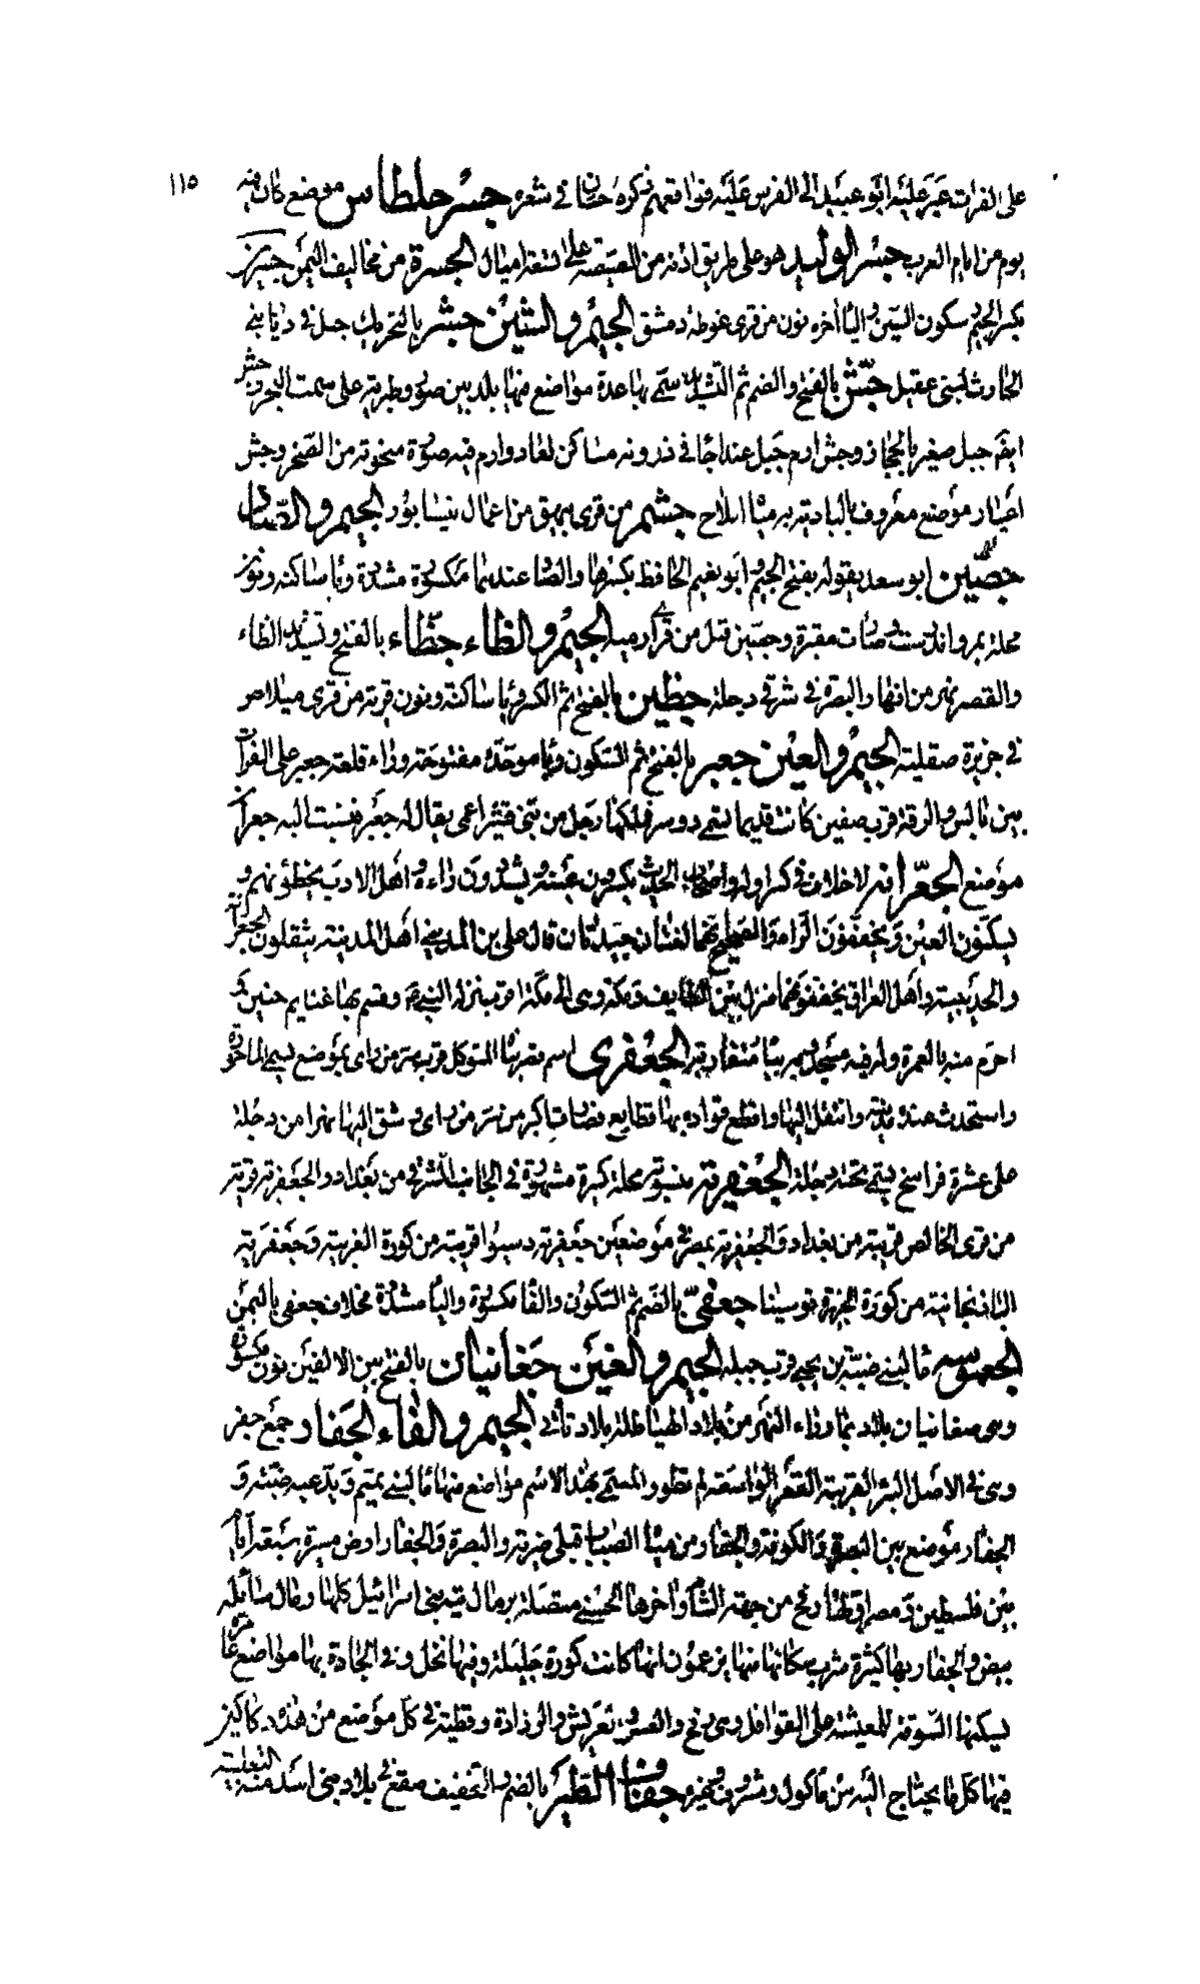 ١١٥
على الفرات عبر عليه ابو عبيد الى الفرس عليه فواقعهم ذكره حسان في شعره جسر خلطاس موضع كان فيه
يوم من ايام العرب جسر الوليد هو على طريق اذنه من المصيصه على تسعة اميال الجسرة من مخاليف اليمن جسرين
بكسر الجيم وسكون السين والياء اخره نون من قرى غوطه دمشق الجيم والشين جشر بالتحريك جبل في ديار بني
الحارث لبنى عقيل جش بالفتح والضم ثم التشديد سمى بها عدة مواضع منها بلد بين صور وطبرية على سمت البحر وجش
ايضا جبل صغير بالحجاز وجش ارم جبل عند اجا في ذروته مساكن لعاد وارم فيه صورة منحوتة من الصخر وجش
اعيار موضع معروف بالبادية من مياه املاح جشم من قرى بيهق من اعمال نيسابور الجيم والصاد
جصين ابو سعد يقوله بفتح الجيم وابو نعيم الحافظ بكسرها والصاد عندهما مكسورة مشددة وياء ساكنه ونون
محلة بمرو اندرست وصارت مقبرة وجصين قيل من قرى ارميه الجيم والظاء جظاء بالفتح وتشديد الظاء
والقصر نهر من انهار البصرة في شرقي دجلة جظين بالفتح ثم الكسر وياء ساكنة ونون قرية من قرى ميلاص
في جزيرة صقلية الجيم والعين جعبر بالفتح ثم السكون وباء موحدة مفتوحة وراء قلعة جعبر على الفرات
بين بالس والرقة قرب صفين كانت قديما تسمى دوسر فملكها رجل من بنى قشير اعمى يقال له جعبر فنسبت اليه جعران
موضع الجعرانه لا خلاف في كسر اوله واصحاب الحديث يكسرون عينه ويشددون راءه واهل الادب يخطئونهم و
يسكنون العين ويخففون الراء والصحيح انهما لغتان جيدتان قال على بن المديني اهل المدينة يثقلون الجعرانه
والحديبية واهل العراق يخففونهما منزل بين الطايف ومكة وهى الى مكة اقرب نزله النبي وقسم بها غنايم حنين ثم
احرم منه بالعمرة وله فيه مسجد وبه بئار متقاربة الجعفري اسم قصر بناه المتوكل قرب سر من راى بموضع يسمى الماحوزة
واستحدث عنده مدينة وانتقل اليها واقطع قواده بها قطايع فصارت اكبر من سر من راى وشق اليها نهرا من دجلة
على عشرة فراسخ يسمى جبة دجلة الجعفرية منسوبة محلة كبيرة مشهورة في الجانب الشرقي من بغداد والجعفرية قرية
من قرى الخالص قريبة من بغداد والجعفرية بمصر في موضعين جعفرية دبسوا قريبة من كورة الغربية وجعفرية
الباذنجانية من كورة الجزيرة قوسينا جعفى بالضم ثم السكون والفاء مكسورة والياء مشددة مخلاف جعفى باليمن
الجعموسه ماء لبني ضبينة بن يحيى قرب جبله الجيم والغين جغانيان بالفتح بين الالفين نون مكسورة
وهى صغانيان بلاد بما وراء النهر من بلاد الهياطلة بلاد تأتي الجيم والفاء الجفار جمع جفر
وهى في الاصل البئر القريبة القعر الواسعة لم تطو والمسمى بهذا الاسم مواضع منها ماء لبني تميم وتدعيه ضبة و
الجفار موضع بين البصرة والكوفة والجفار من مياه الضباب قبلى ضرية والبصرة والجفار ارض مسيرة سبعة ايام
بين فلسطين ومصر اولها رفح من جهة الشام واخرها الخشبي متصلة برمال تيه بنى اسرائيل كلها رمال سائلة
بيض والجفار بها كثيرة شرب سكانها منها يزعمون انها كانت كورة جليلة وفيها نخل وفي الجادة بها مواضع عامرة
يسكنها السوقة للمعيشة على القوافل وهى رفح والقس والعريش والورادة وقطية في كل موضع من هذه دكاكين
فيها كل ما يحتاج اليه من ماكول ومشروب وغيره جفاف الطير بالضم والتخفيف صقع في بلاد بنى اسد منه الثعلبية